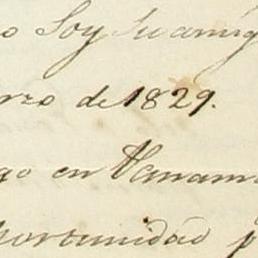 o Soy su amig
rzo de 1829.
go en Panam
portunidad p